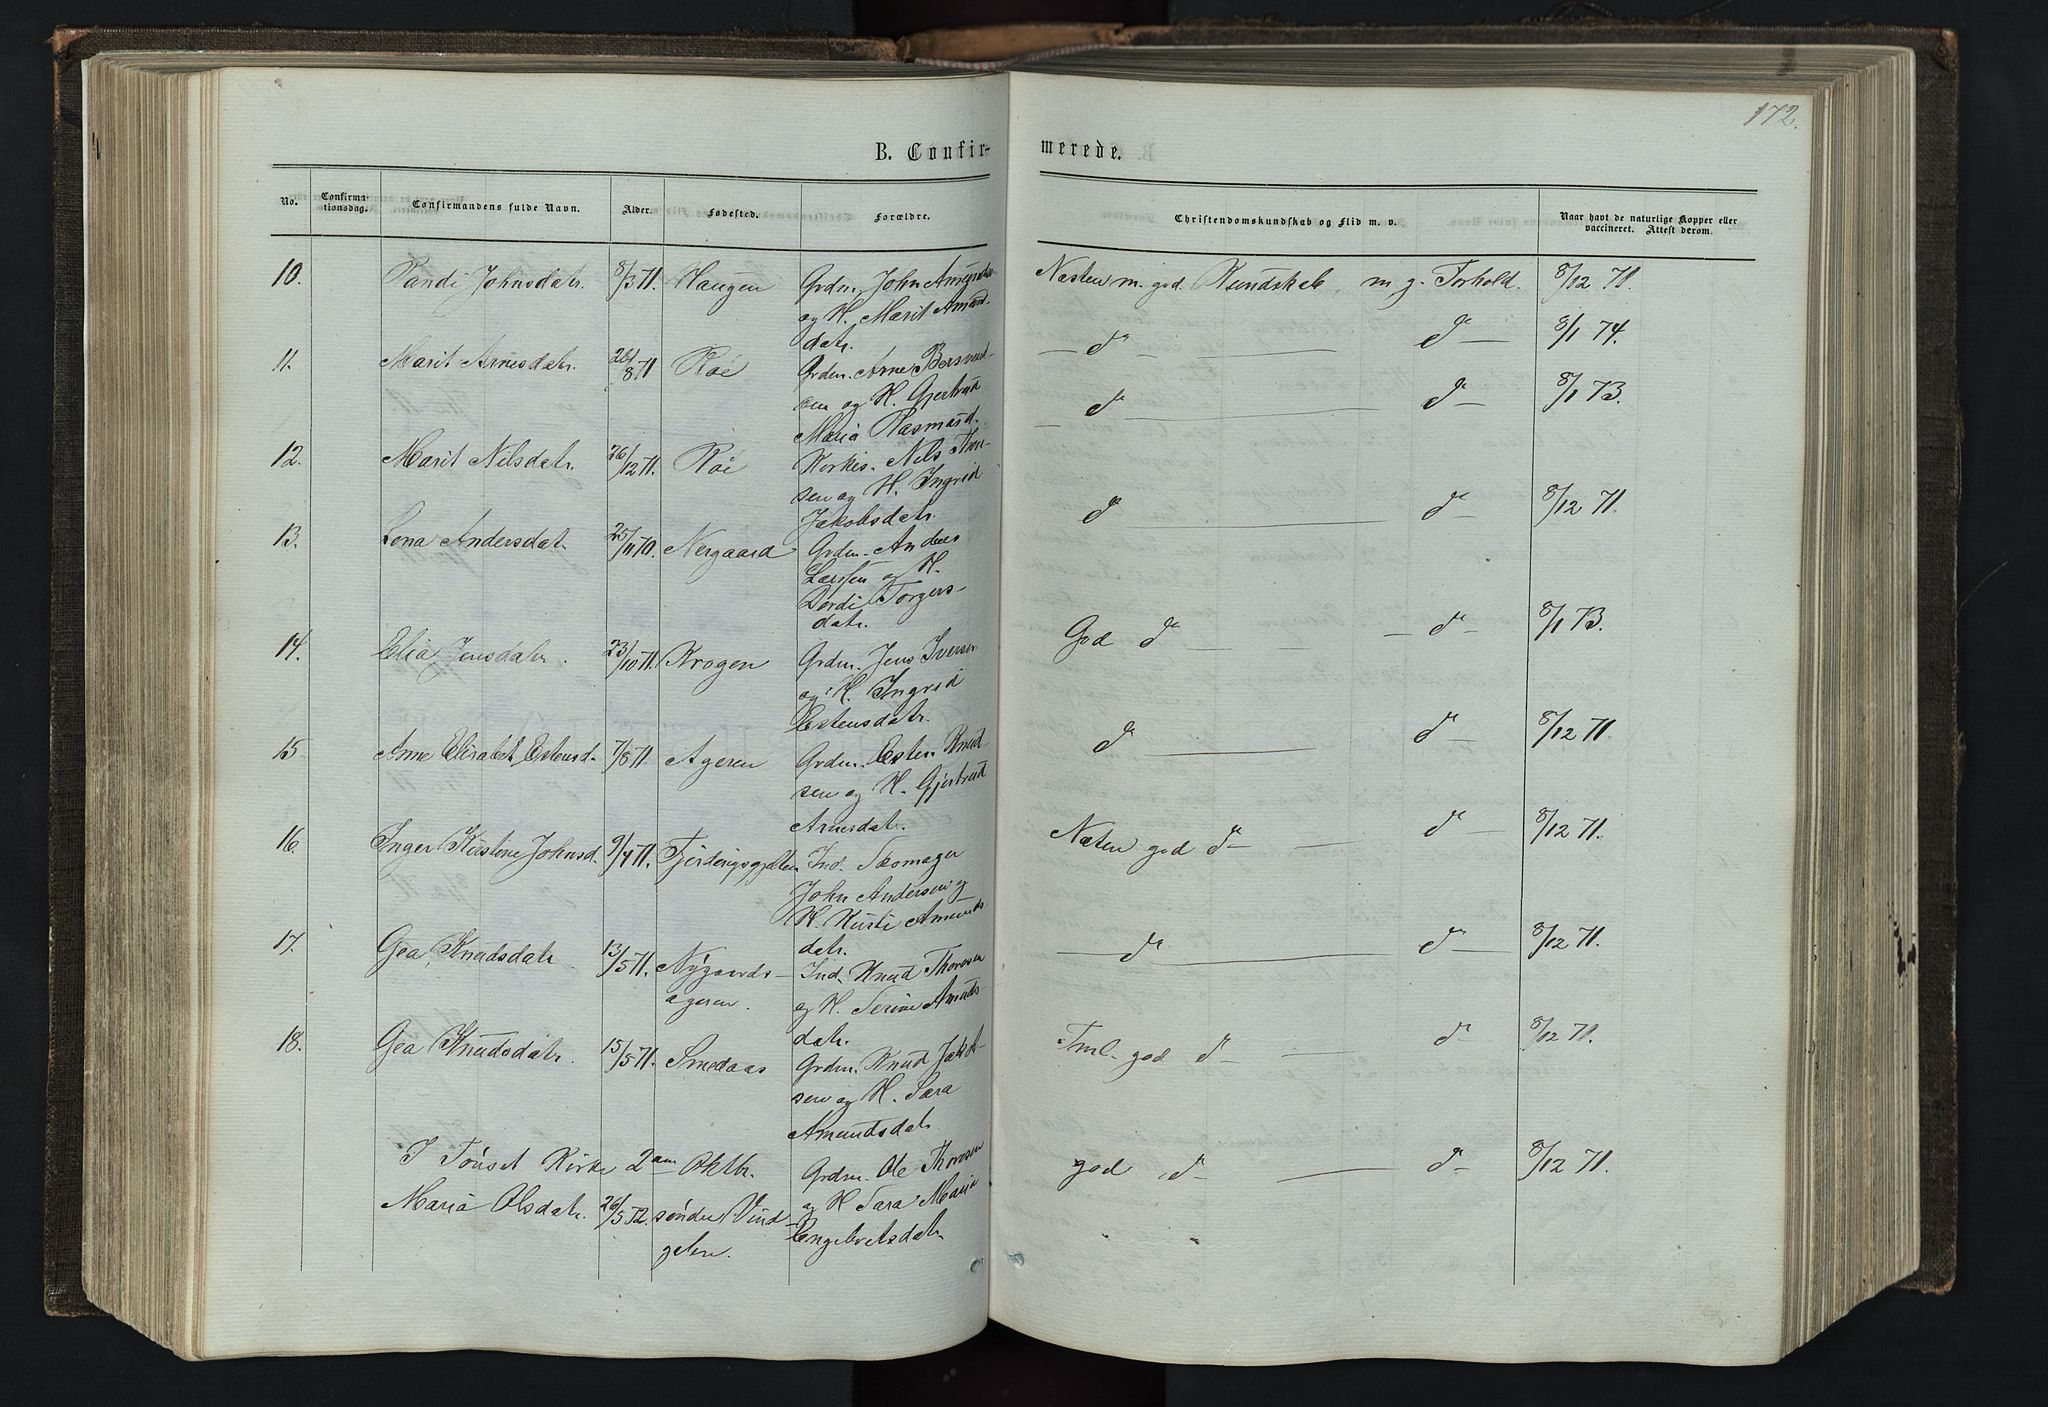 172.
B. Confir-
merede.
No.
Confirma-
tionsdag.
Confirmandens fulde Navn.
Alder.
Fødested.
Forældre.
Christendomskundskab og Flid m. v.
Naar havt de naturlige Kopper eller
vaccineret. Attest derom.
10. Randi Johnsdatr. 8/3 71. Haugen Grdm. John Amunds
og H. Marit Amund
datr.
Næsten m. god Kundskab m g. Forhold. 8/12 71.
11. Marit Arnesdatr. 8 71 Røe Grdm. Arne Bersvend-
sen og H. Gjertrud
Maria Rasmusd.
— do — do — 8/1 74.
12. Marit Nilsdatr. 26/12 71. Røe Nils
sen og H. Ingrid
Jakobsdatr.
— do — do — 8/1 73.
13. Lena Andersdatr. 25/11 70. Nergaard Grdm. Anders
Larsen og H.
Dordi Torgers-
datr.
do — do — 8/12 71.
14. Elia Jensdatr. 23/10 71. Krogen Grdm. Jens Iversen
og H. Ingrid
Estensdatr.
God do — do — 8/1 73.
15 Anne Elisabet Estensd. 7/8 71. Ageren Grdm. Esten Knud-
sen og H. Gjertrud
Arnesdatr.
do — do — 8/12 71.
16. Inger Kirstine Johnsd. 9/4 71. Fjerdingsgjelten Ind. Skomager
John Andersen og
H. Kirsti Amunds
datr.
Næsten god do — do — 8/12 71.
17. Gea Knudsdatr. 13/5 71. Nygaards-
ageren. Ind. Knud Thoresen
og H. Serine Amunds-
datr.
— do — do — 8/12 71.
18. Gea Knudsdatr. 15/5 71. Smedaas Grdm. Knud Jakob-
sen og H. Sara
Amundsdatr.
Tml. god do — do — 8/12 71.
I Tønset Kirke 2den Oktbr.
Maria Olsdatr. 26/5 72. søndre Vind-
gelen. Grdm. Ole Thoresen
og H. Sara Maria
Engebretsdatr.
god do — do — 8/12 71.